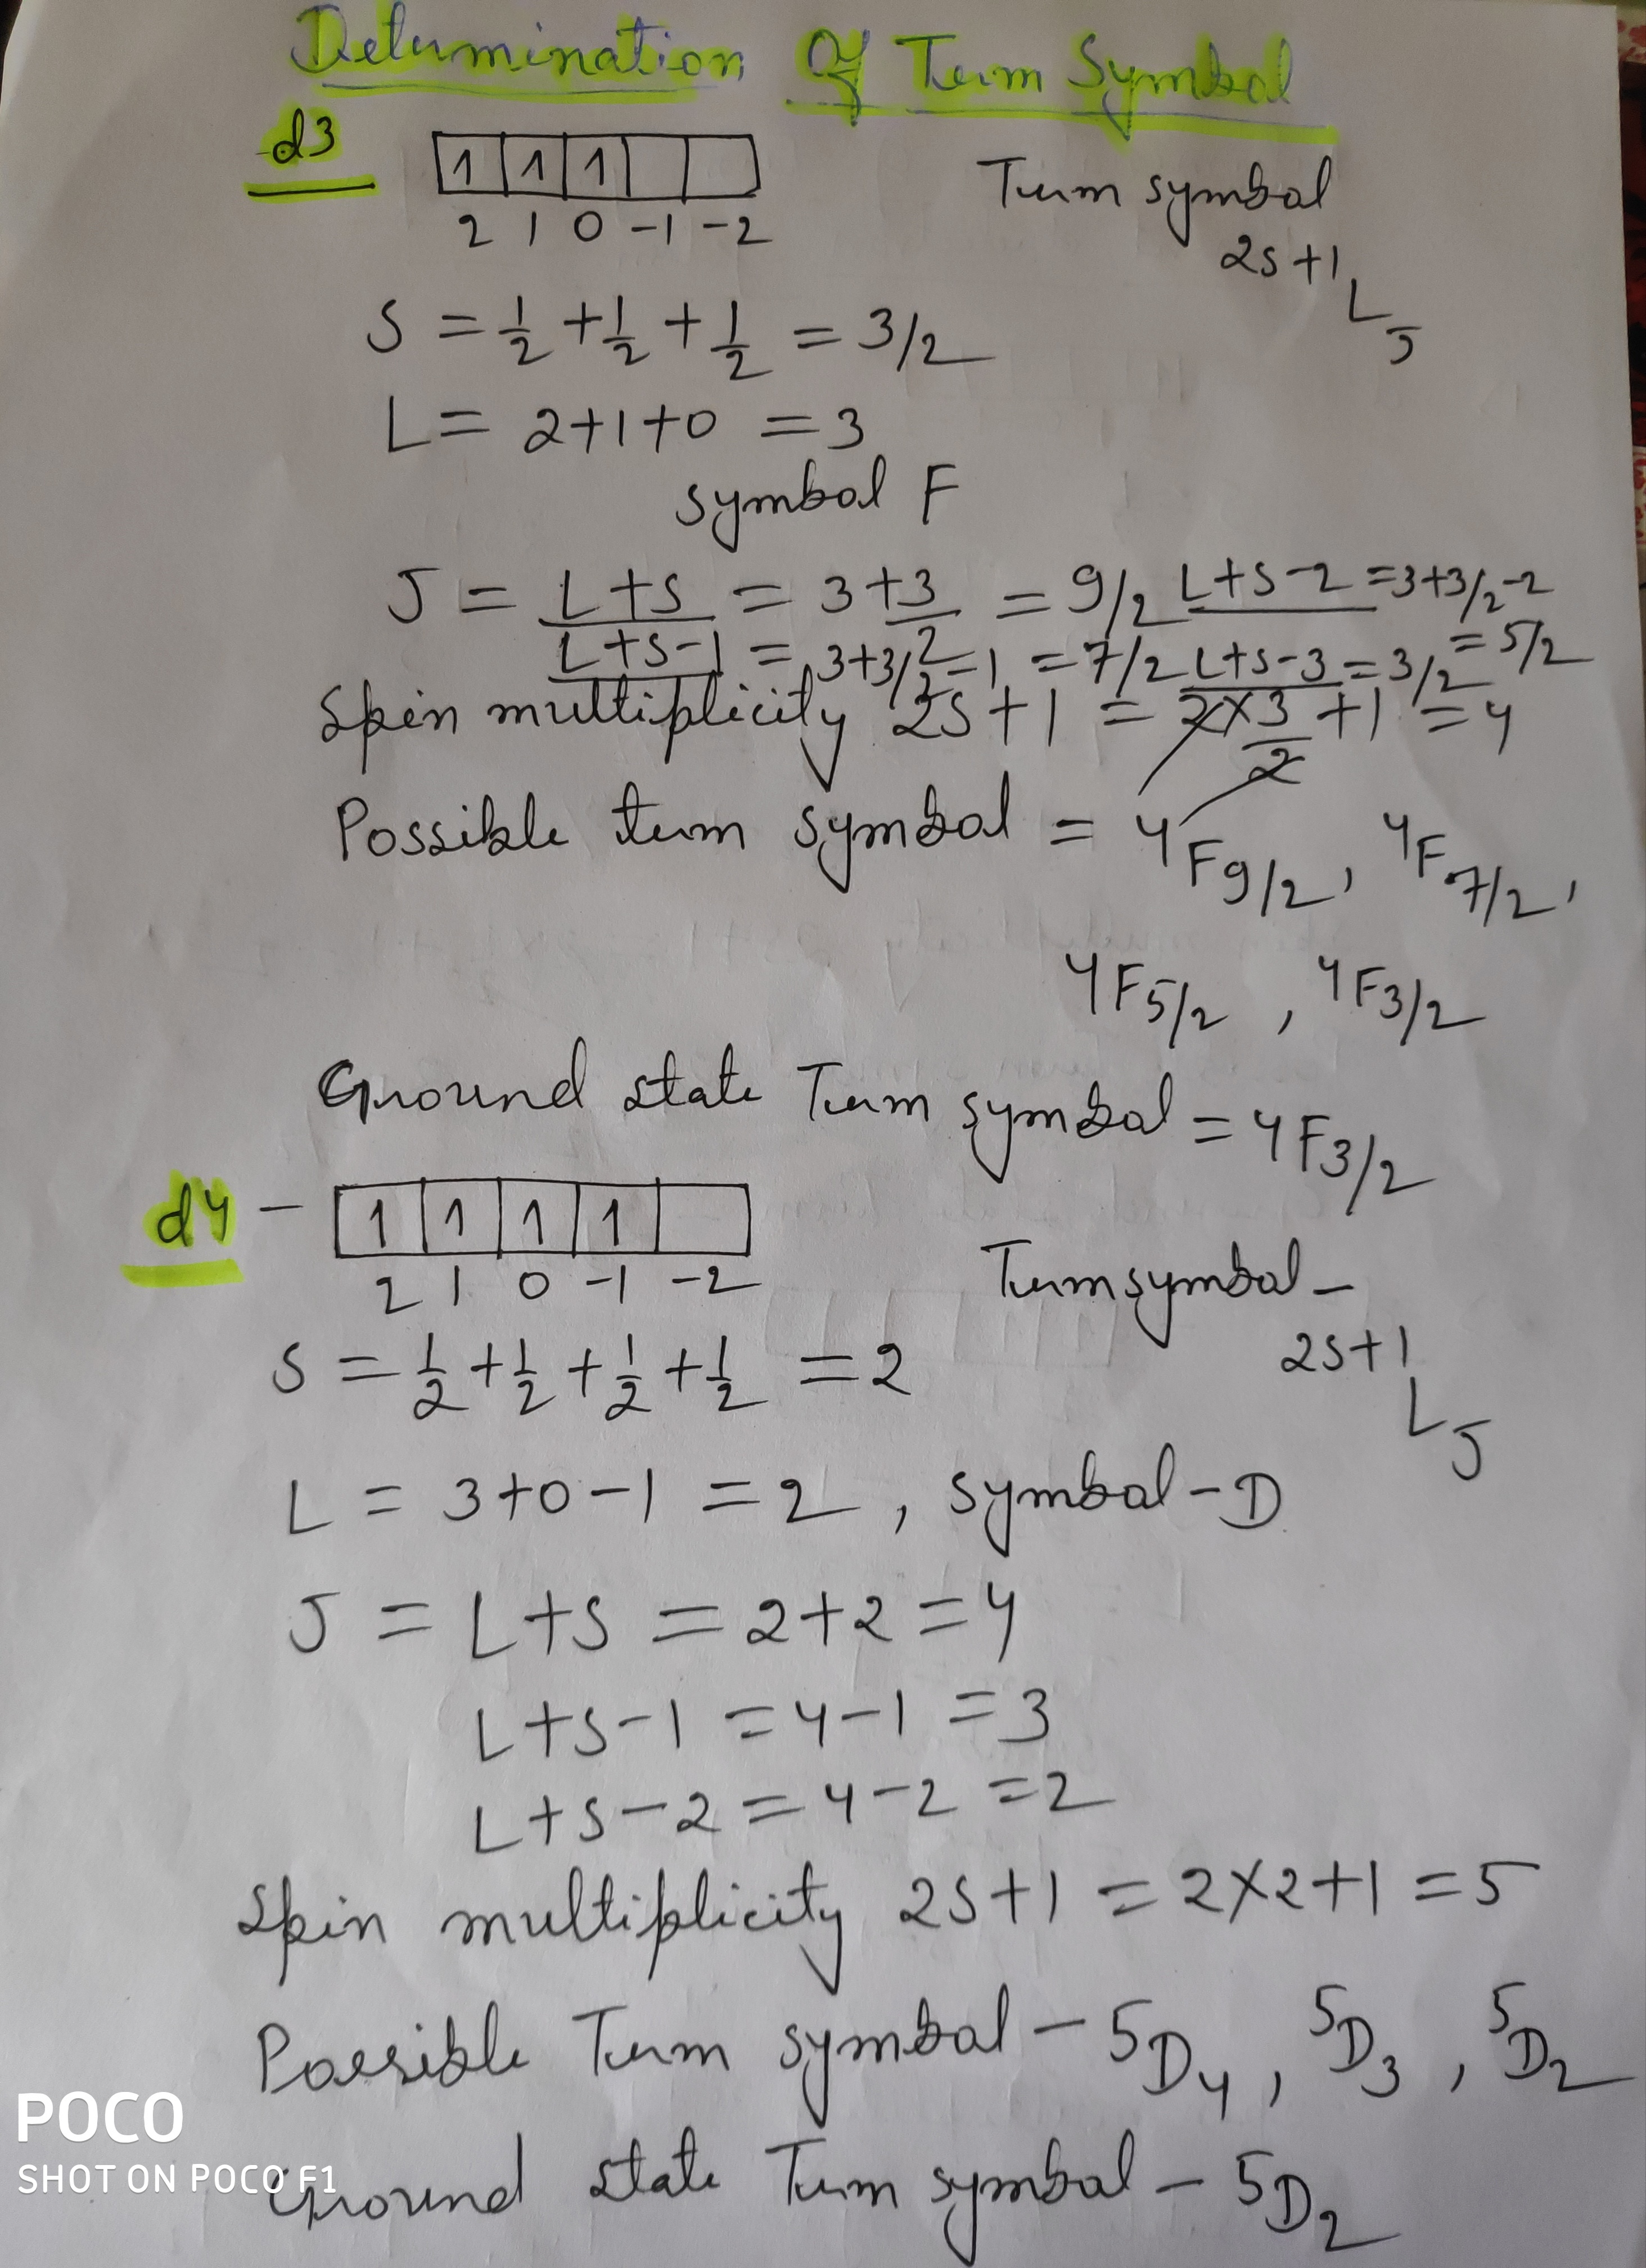 Determination Of Term Symbol
d3
1 1 1
2 1 0 -1 -2
Term symbol
2s+1 L J
S = 1/2 + 1/2 + 1/2 = 3/2
L = 2+1+0 = 3
symbol F
J = L+S = 3+3/2 = 9/2 L+S-2 = 3+3/2-2 = 5/2
L+S-1 = 3+3/2-1 = 7/2 L+S-3 = 3/2
Spin multiplicity 2S+1 = 2×3/2+1 = 4
Possible term symbol = 4F9/2, 4F7/2,
4F5/2, 4F3/2
Ground state Term symbol = 4F3/2
d4 -
1 1 1 1
2 1 0 -1 -2
Term symbol -
2s+1 L J
S = 1/2 + 1/2 + 1/2 + 1/2 = 2
L = 3+0-1 = 2, symbol - D
J = L+S = 2+2 = 4
L+S-1 = 4-1 = 3
L+S-2 = 4-2 = 2
Spin multiplicity 2S+1 = 2×2+1 = 5
Possible Term symbol - 5D4, 5D3, 5D2
Ground state Term symbol - 5D2
POCO
SHOT ON POCO F1